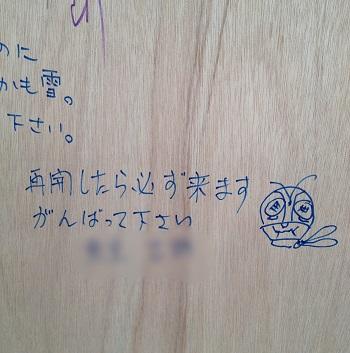 のに
かも雪。
下さい。
再開したら必ず来ます
がんばって下さい